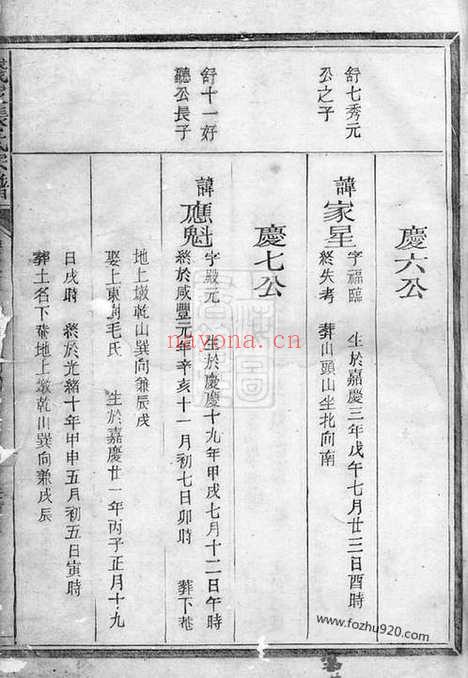 慶六公
舒七秀元
公之子
諱家星
字福臨　生於嘉慶三年戊午七月廿三日酉時
終失考　葬山頭山坐北向南
慶七公
舒十一好
聽公長子
諱應魁
字殿元　生於慶慶十九年甲戌七月十二日午時
終於咸豐元年辛亥十一月初七日卯時　葬下菴
地上墩乾山巽向兼辰戌
娶上東
毛氏　生於嘉慶廿一年丙子正月十九
日戌時　終於光緒十年甲申五月初五日寅時
葬土名下菴地上墩乾山巽向兼戌辰
nayona.cn
www.fozhu920.com